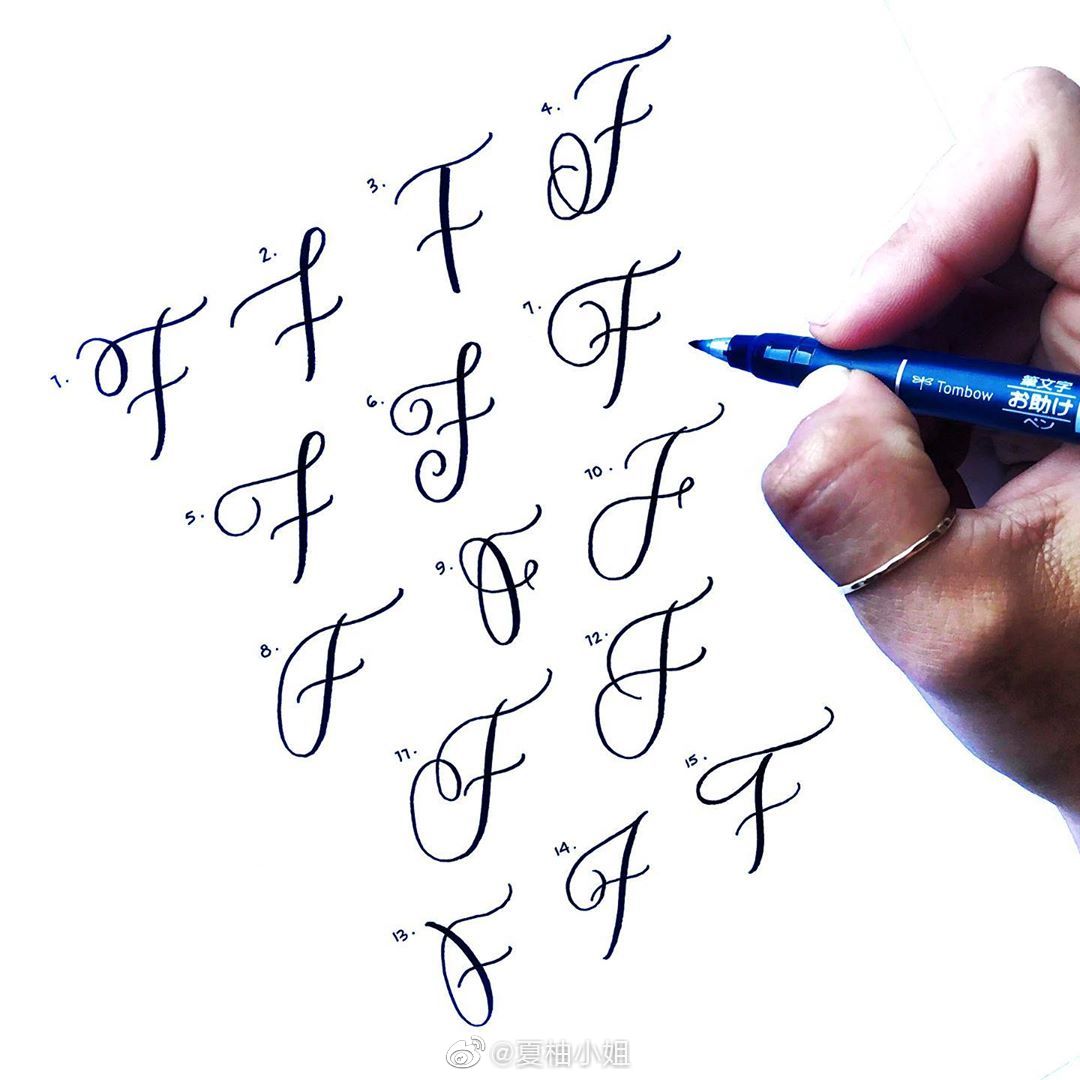 1. F
2. F
3. F
4. F
5. F
6. F
7. F
8. F
9. F
10. F
11. F
12. F
13. F
14. F
15. F
Tombow
筆文字
お助け
ペン
@夏柚小姐